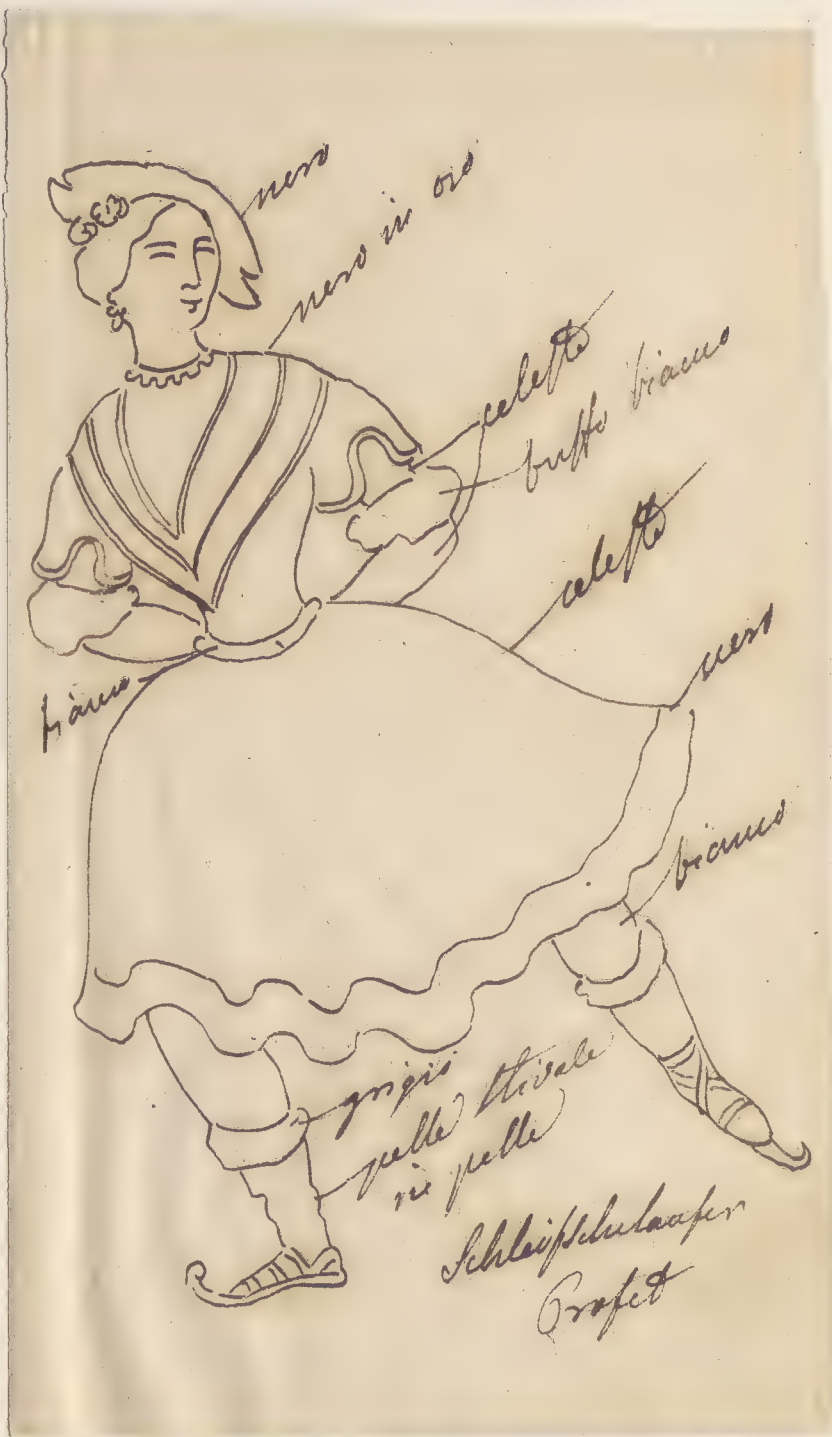 nero
nero in oro
celeste
buffo bianco
celeste
nero
bianco
bianco
grigio
pelle stivale
in pelle
Schleifschulaufer
Profet